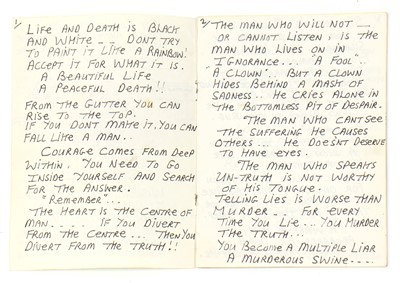 1/
LIFE AND DEATH IS BLACK
AND WHITE -- DONT TRY
TO PAINT IT LIKE A RAINBOW!
ACCEPT IT FOR WHAT IT IS.
A BEAUTIFUL LIFE
A PEACEFUL DEATH!!
FROM THE GUTTER YOU CAN
RISE TO THE TOP.
IF YOU DONT MAKE IT. YOU CAN
FALL LIKE A MAN..
COURAGE COMES FROM DEEP
WITHIN. YOU NEED TO GO
INSIDE YOURSELF AND SEARCH
FOR THE ANSWER.
"REMEMBER"...
THE HEART IS THE CENTRE OF
MAN.... IF YOU DIVERT
FROM THE CENTRE... THEN YOU
DIVERT FROM THE TRUTH!!
2/
THE MAN WHO WILL NOT —
OR CANNOT LISTEN, IS THE
MAN WHO LIVES ON IN
IGNORANCE... "A FOOL"..
"A CLOWN".. BUT A CLOWN
HIDES BEHIND A MASK OF
SADNESS.. HE CRIES ALONE IN
THE BOTTOMLESS PIT OF DESPAIR.
"THE MAN WHO CANT SEE
THE SUFFERING HE CAUSES
OTHERS... HE DOESNT DESERVE
TO HAVE EYES.
"THE MAN WHO SPEAKS
UN-TRUTH IS NOT WORTHY
OF HIS TONGUE.
TELLING LIES IS WORSE THAN
MURDER... FOR EVERY
TIME YOU LIE... YOU MURDER
THE TRUTH...
YOU BECOME A MULTIPLE LIAR
A MURDEROUS SWINE....